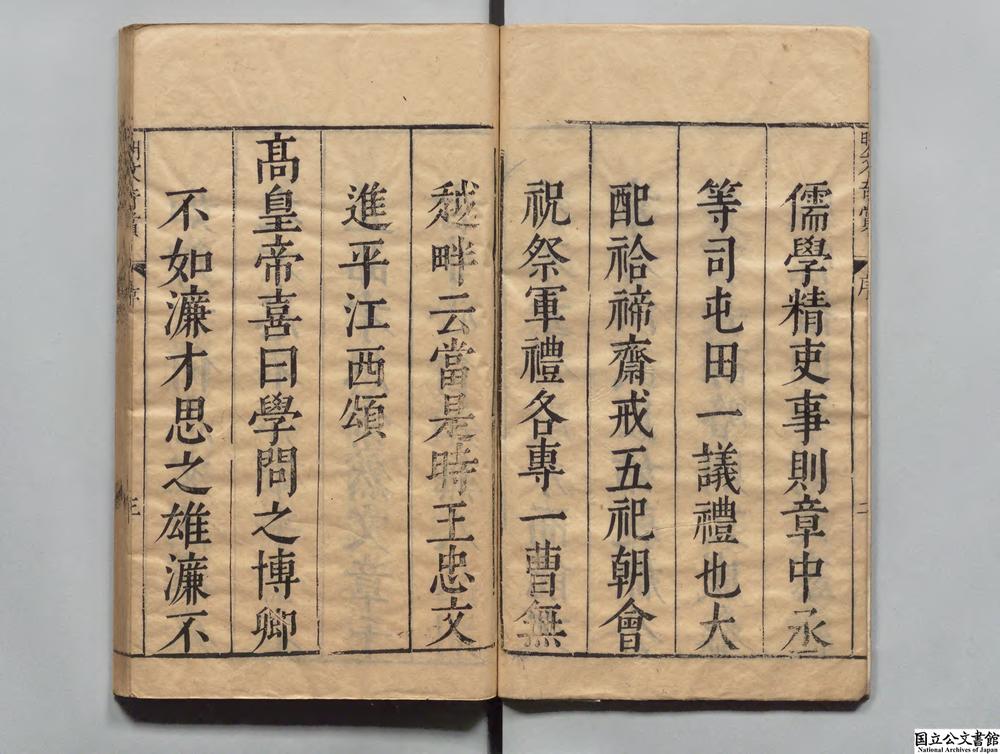 儒學精吏事則章中丞
等司屯田一議禮也大
配祫禘齋戒五祀朝會
祝祭軍禮各專一曹無
越畔云當是時王忠文
進平江西頌
高皇帝喜曰學問之博卿
不如濂才思之雄濂不
序
三
国立公文書館
National Archives of Japan